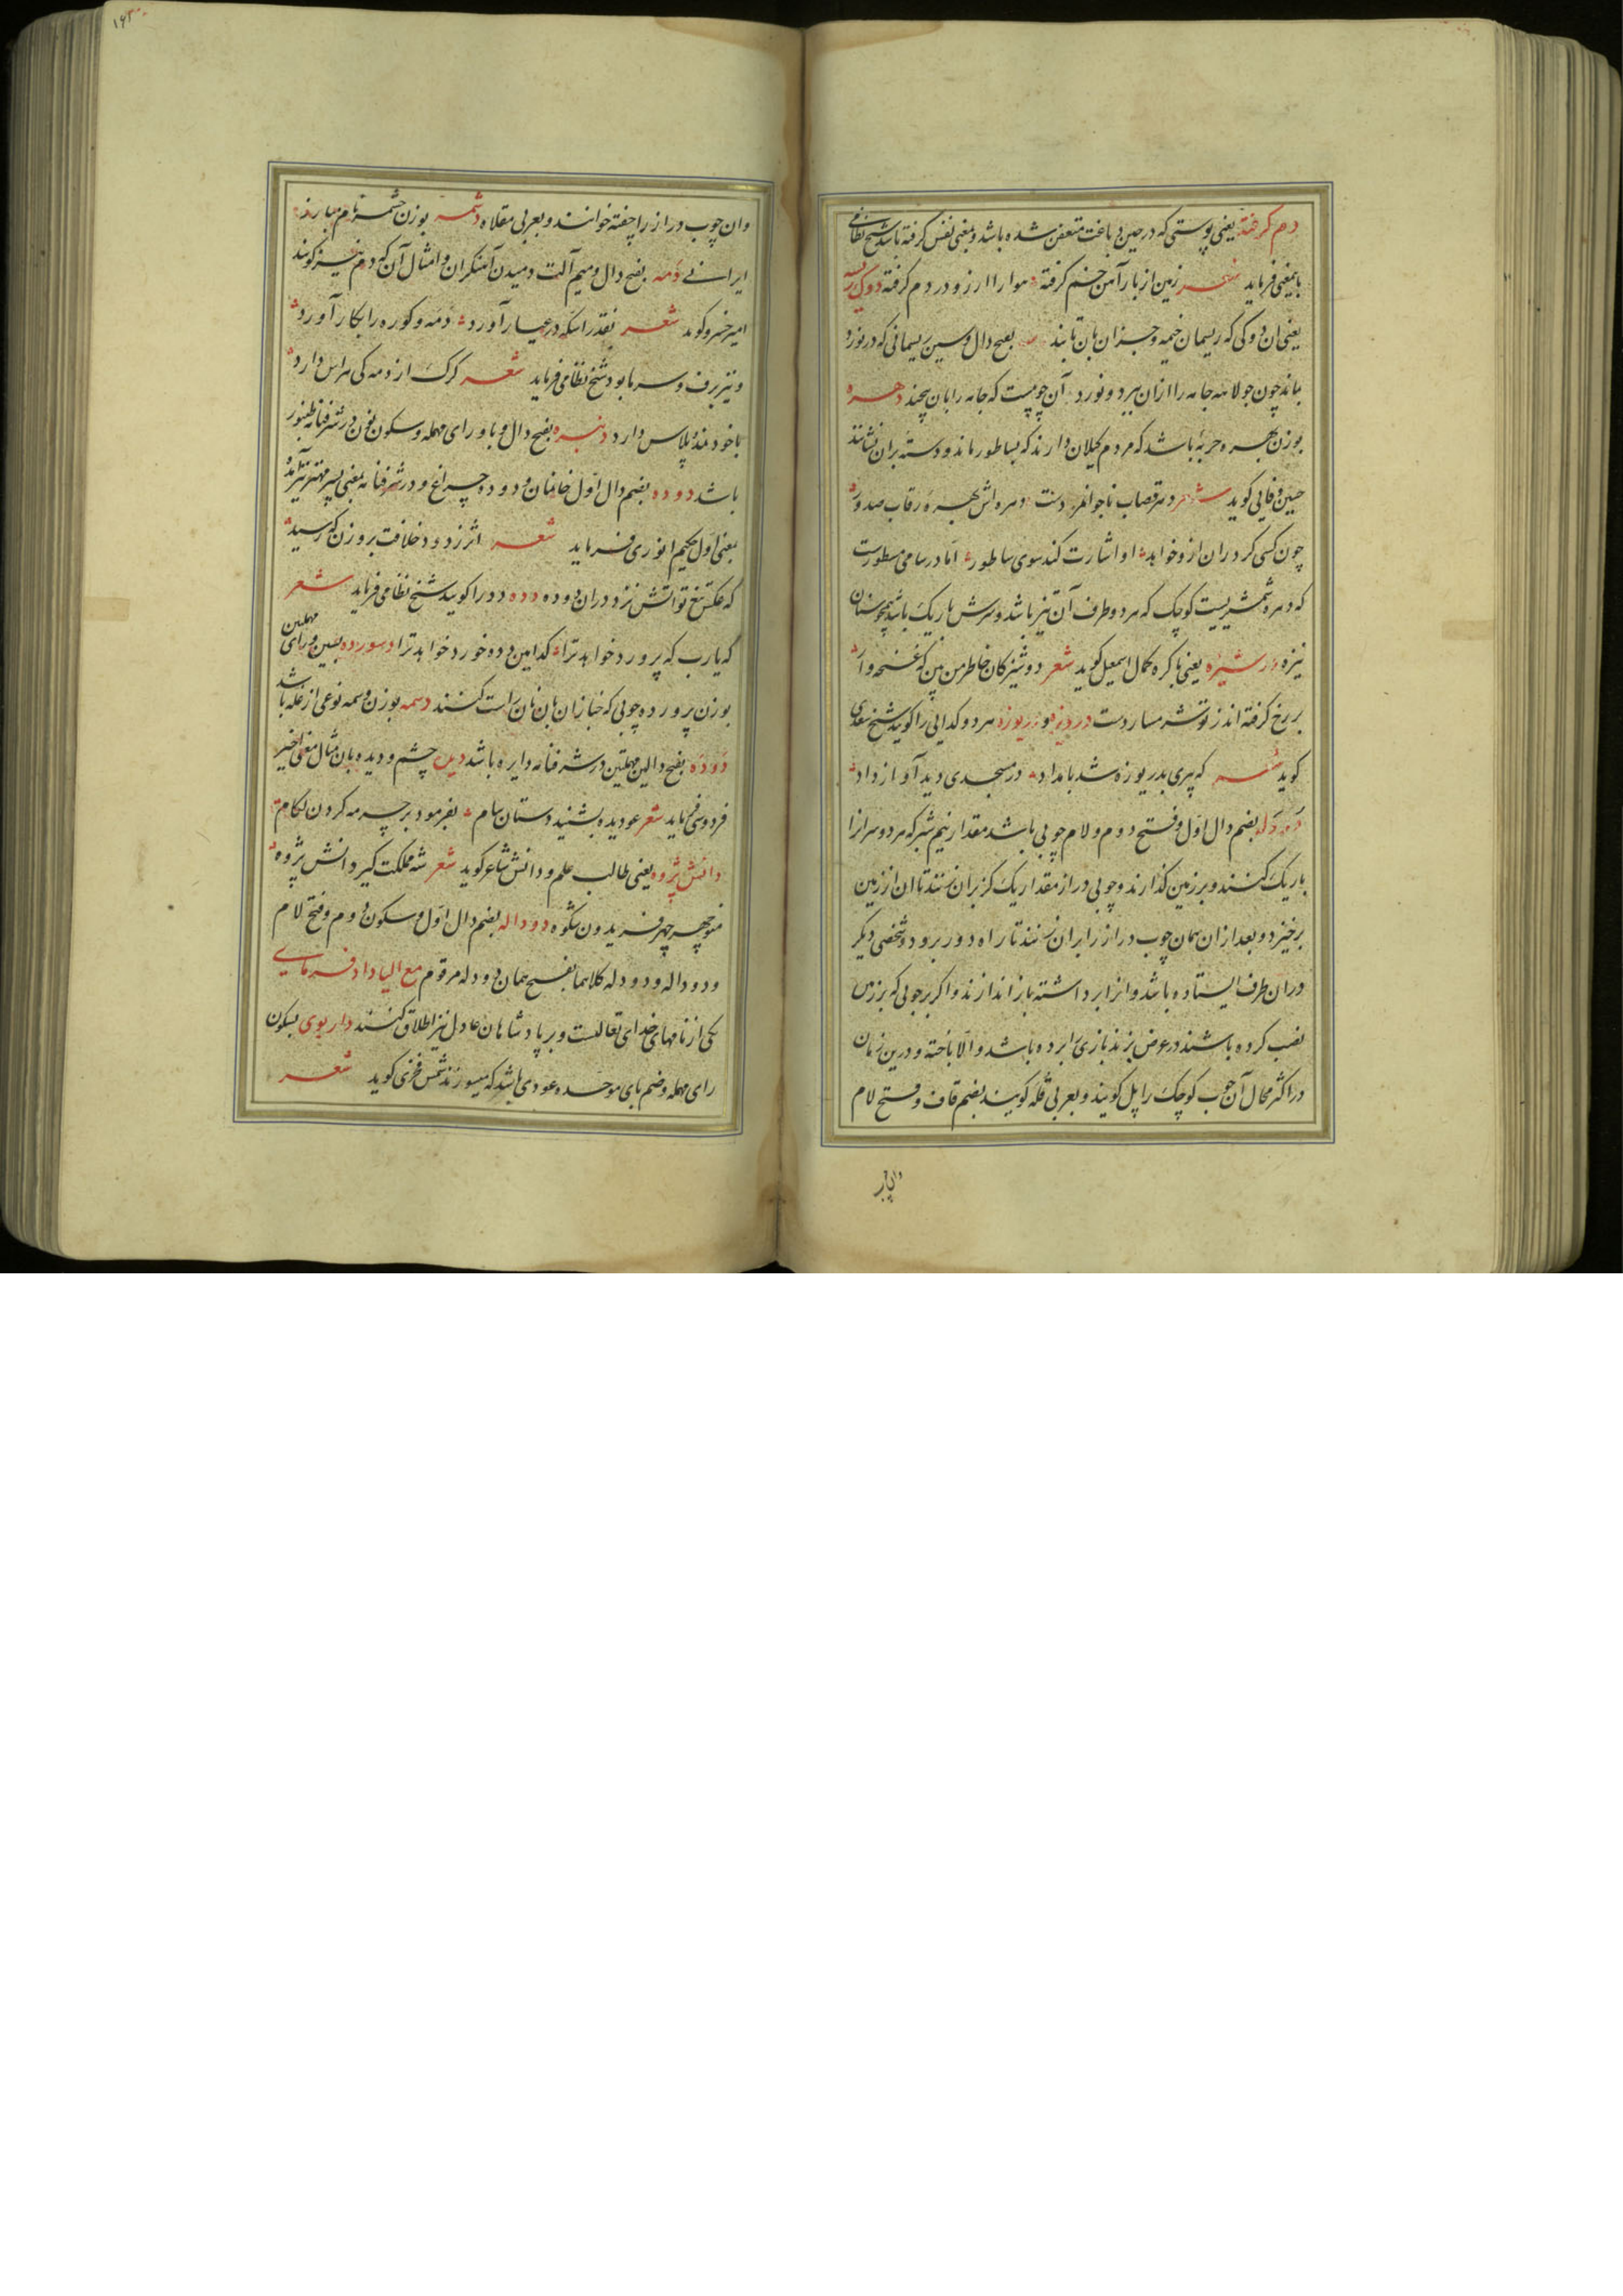 دم گرفته یعنی پوستی که در حین دباغت متعفن شده باشد و بمعنی نفس گرفته باشد شیخ نظامی
باین معنی فرماید شعر زمین از بار آهن خم گرفته هوا را از زو در دم گرفته دوک ریسه
یعنی آن دوکی که ریسمان خیمه و جز آن بان تابند بفتح دال و سین ریسمانی که در نورد
بماند چون جولاهه جامه را از آن ببرد و نورد آن چوبیست که جامه را بان پیچند دهره
بوزن بهره حربهٔ باشد که مردم گیلان دارند که بساطور ماند و دسته بران نشانند
حسین وفایی گوید شعر دهر قصاب ناجوانمرد دست دهره اش بهرهٔ رقاب صدور
چون کسی کرد ران ازو خواهد او اشارت کند سوی ساطور اما در سامی مسطورست
که دهره شمشیریست کوچک که هر دو طرف آن تیز باشد و سرش باریک باشد همچو سنان
نیزه دوشیزه یعنی باکره کمال اسمعیل گوید شعر دوشیزگان خاطر من بین که غنچه وار
بر رخ گرفته اند ز تو تشر مسار دست دریوزه و دریوزه هر دو گدایی را گویند شیخ سعدی
گوید شعر که پیری بدریوزه شد بامداد در مسجدی دید آواز داد
دودله بضم دال اول و فتح دوم و لام چوبی باشد مقدار نیم شبر که هر دو سر انرا
باریک کنند و بر زمین گذارند و چوبی دراز مقدار یک گز بران زنند تا ان از زمین
برخیزد و بعد از ان همان چوب دراز را بران زنند تا راه دور برود و شخصی دیگر
دران طرف ایستاده باشد و انرا برداشته باز اندازند و اگر بر چوبی که بر زمین
نصب کرده باشند در عوض بزند بازی را برده باشد و الا باخته و درین زمان
در اکثر محال آن چوب کوچک را پل گویند و بعربی قله گویند بضم قاف و فتح لام
۱۶۳
وان چوب دراز را چفته خوانند و بعربی مقلاه دشمه بوزن چشمه نام مبارز
ایرانی دمه بفتح دال و میم آلت دمیدن آهنگران و امثال آن که دم نیز گویند
امیر خسرو گوید شعر نقد را سکه در عیار آورد دمه و کوره را بکار آورد
و نیز برف و سرما بود شیخ نظامی فرماید شعر گرگ از دمه کی هراس دارد
با خود نمد و پلاس دارد دنبره بفتح دال و با و رای مهمله و سکون نون در شرفنامه طنبور
باشد دوده بضم دال اول خاندان و دوده چراغ و در شرفنامه بمعنی پسر مهتر نیز آمده
بمعنی اول حکیم انوری فرماید شعر اثر زد و د خلافت بروزن که رسید
که عکس تیغ تو آتش نزد دران دوده دده دد را گویند شیخ نظامی فرماید شعر
که یارب که پرورد خواهد ترا کدامین دده خورد خواهد ترا دسورده بسین و رای مهملتین
بوزن پرورده چوبی که خبازان بان نان راست کنند دسمه بوزن وسمه نوعی از غله باشد
دوده بفتح دالین مهملتین در شرفنامه دایره باشد دیده چشم و دیده بان مثال معنی اخیر
فردوسی فرماید شعر عو دیده بشنید دستان سام بفرمود بر چرمه کردن لگام
دانش پژوه یعنی طالب علم و دانش شاعر گوید شعر شه مملکت گیر دانش پژوه
منوچهر چهر فریدون شکوه دوداله بضم دال اول و سکون دوم و فتح لام
و دوداله و دودله کلاهما بفتح همان دودله مرقوم مع الیا دادفرمای
یکی از نامهای خدای تعالیست و بر پادشاهان عادل نیز اطلاق کنند داربوی بسکون
رای مهمله و ضم بای موحده عودی باشد که میسوزند شمس فخری گوید شعر